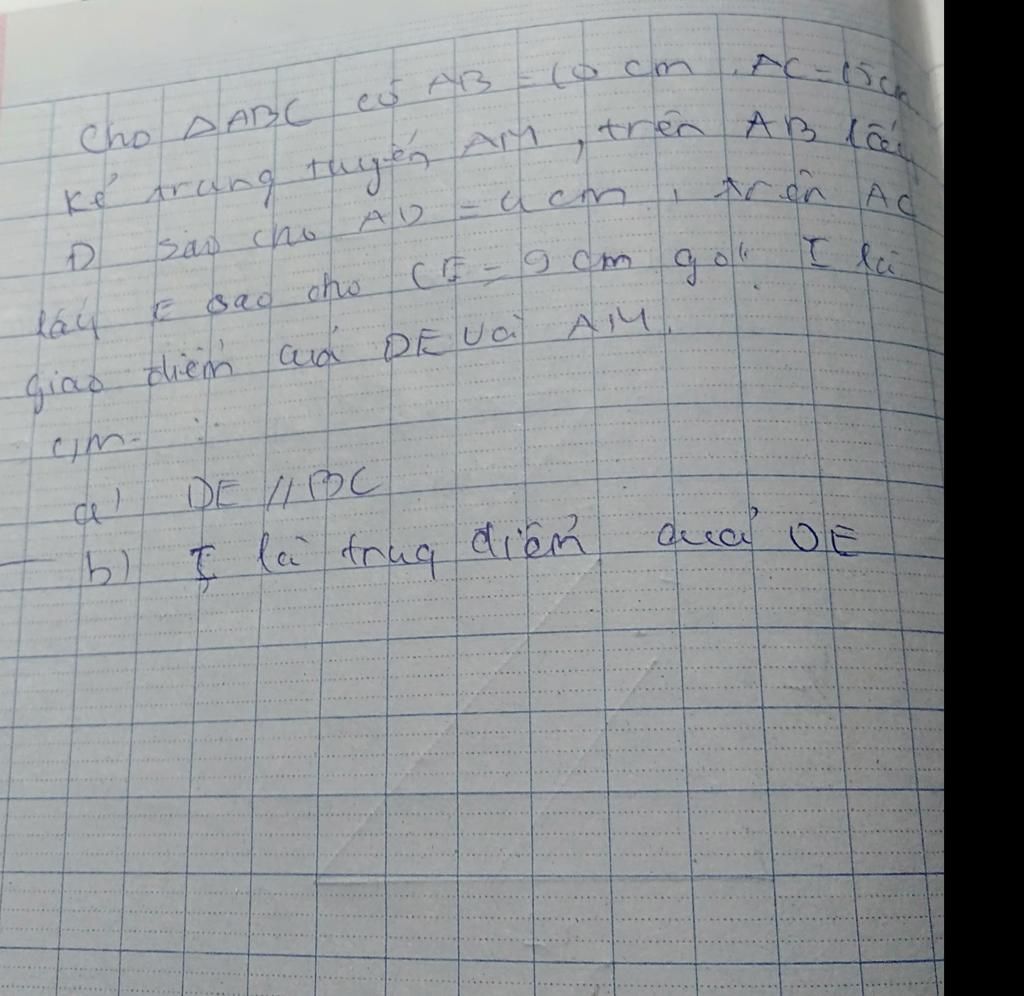 Cho △ABC có AB = 10 cm, AC = 15cm
Kẻ trung tuyến AM, trên AB lấy
D sao cho AD = 4cm, trên AC
lấy E sao cho CE = 9 cm gọi I là
giao điểm của DE và AM.
c/m:
a) DE // BC
b) I là trug điểm của DE